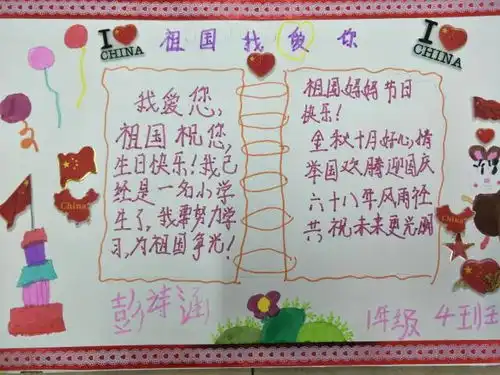 I
CHINA
祖国我爱你
I
CHINA
我爱您,
祖国祝您,
生日快乐!我已
经是一名小学
生了,我要努力学
习,为祖国争光!
祖国妈妈节日
快乐!
金秋十月好心情
举国欢腾迎国庆
六十八年风雨径
共祝未来更光明
China
China
彭诗涵
1年级 4班